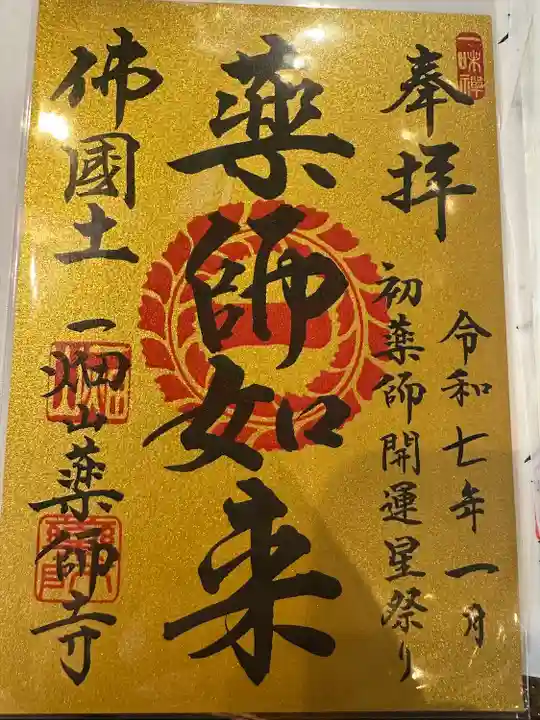 一味禅
奉拝
令和七年一月
初薬師開運星祭り
薬師如来
佛國土
一畑山薬師寺